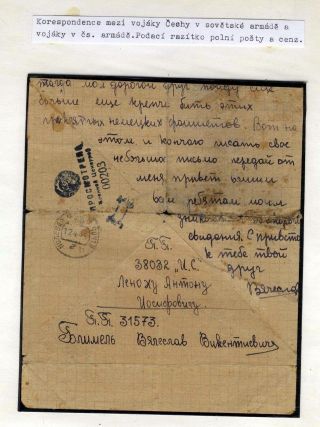 Korespondence mezi vojáky Čechy v sovětské armádě a
vojáky v čs. armádě.Podací razítko polní pošty a cenz.
тогда мой дорогой друг пойду еще
больше еще крепче бить этих
проклятых немецких фашистов. Вот на
этом и кончаю писать свое
небольшое письмо передай от
меня привет всем
вашим ребятам моим
до скорого
свидания. С приветом
к тебе твой
друг
Вячеслав
ПРОСМОТРЕНО
00203
П.П.
38032 „И.С.
Леноху Антону
Иосифовичу
П.П. 31573.
Бликмель Вячеслав Викентиевич